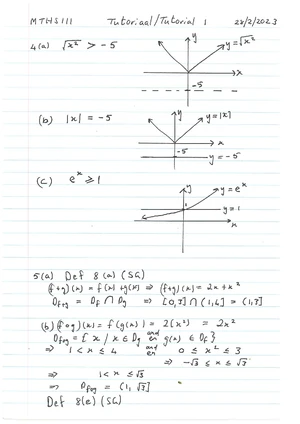 MTHS111 Tutoriaal/Tutorial 1 28/2/2023
4(a) √x² > -5
y
y=√x²
x
-5
(b) |x| = -5
y
y=|x|
x
-5
y=-5
(c) eˣ ≥ 1
y
y=eˣ
1
y=1
x
5(a) Def 8(a) (SG)
(f+g)(x) = f(x)+g(x) ⇒ (f+g)(x) = 2x + x²
D_f+g = D_f ∩ D_g ⇒ [0,3] ∩ (1,4] = (1,3]
(b) (f∘g)(x) = f(g(x)) = 2(x²) = 2x²
D_f∘g = {x / x ∈ D_g and/en g(x) ∈ D_f}
⇒ 1 < x ≤ 4 and/en 0 ≤ x² ≤ 3
⇒ -√3 ≤ x ≤ √3
⇒ 1 < x ≤ √3
⇒ D_f∘g = (1, √3]
Def 8(e) (SG)